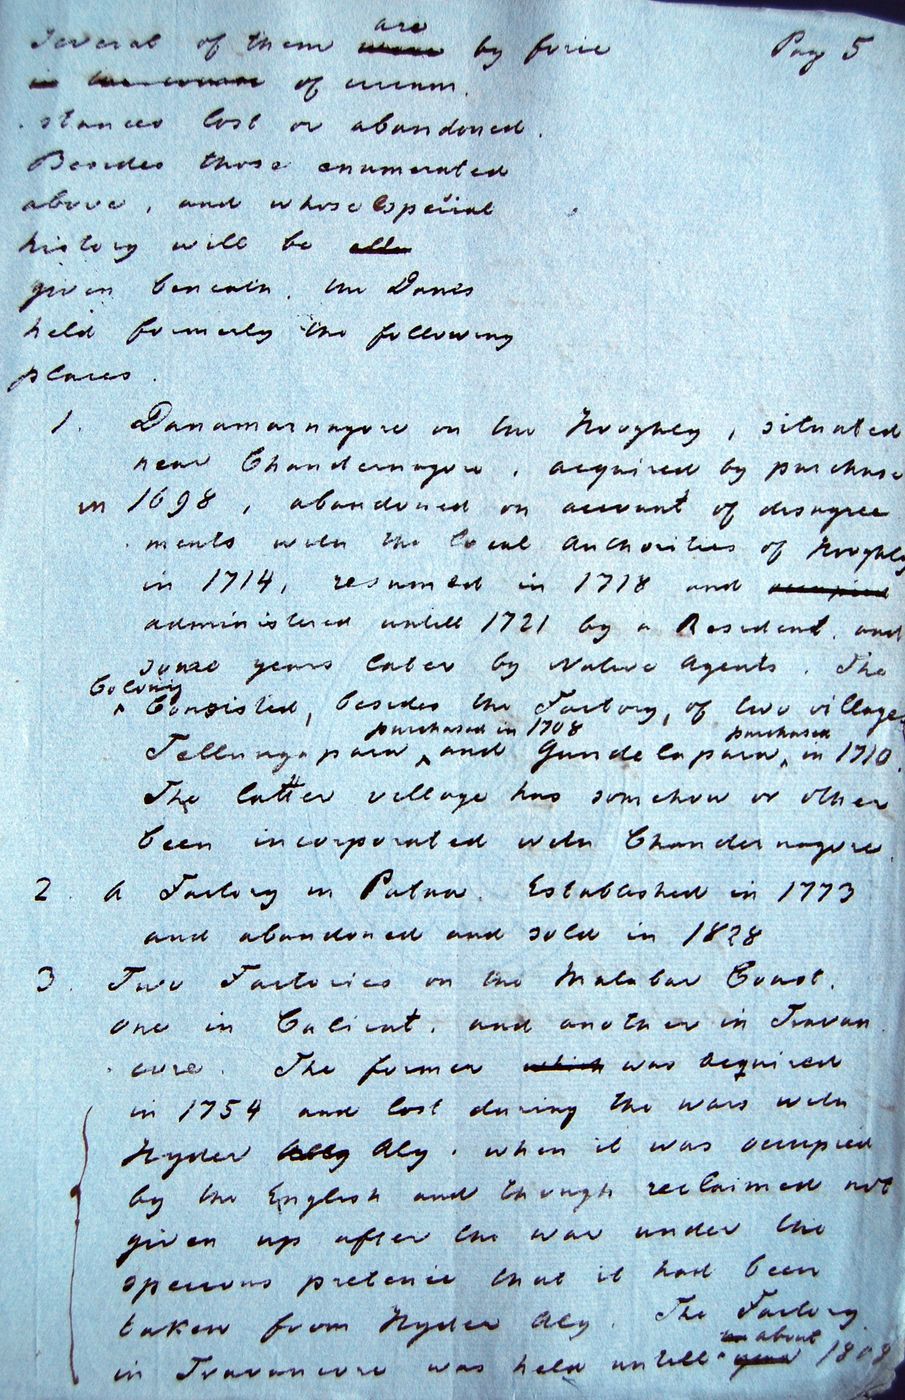 Several of them were are by force Pag 5
in the course of circum.
stances lost or abandoned.
Besides those enumerated
above, and whose special
history will be
given beneath, the Danes
held formerly the following
places.
1. Danamarnagore on the Hooghly, situated
near Chandernagore, acquired by purchase
in 1698, abandoned on account of disagree
ments with the local Authorities of Hooghly
in 1714, resumed in 1718 and occupied
administered untill 1721 by a Resident, and
some years later by Native Agents. The
Colony
Consisted, besides the Factory, of two villages
purchased in 1708 purchased
Tellungapara and Gundelapara, in 1710.
The latter village has somehow or other
been incorporated with Chandernagore.
2. A Factory in Patna. Established in 1773
and abandoned and sold in 1828
3. Two Factories on the Malabar Coast,
one in Calicut, and another in Travan
core. The former which was acquired
in 1754 and lost during the wars with
Hyder Ally Aly, when it was occupied
by the English and though reclaimed not
given up after the war under the
specious pretence that it had been
taken from Hyder Aly. The Factory
about
in Travancore was held untill year 1808